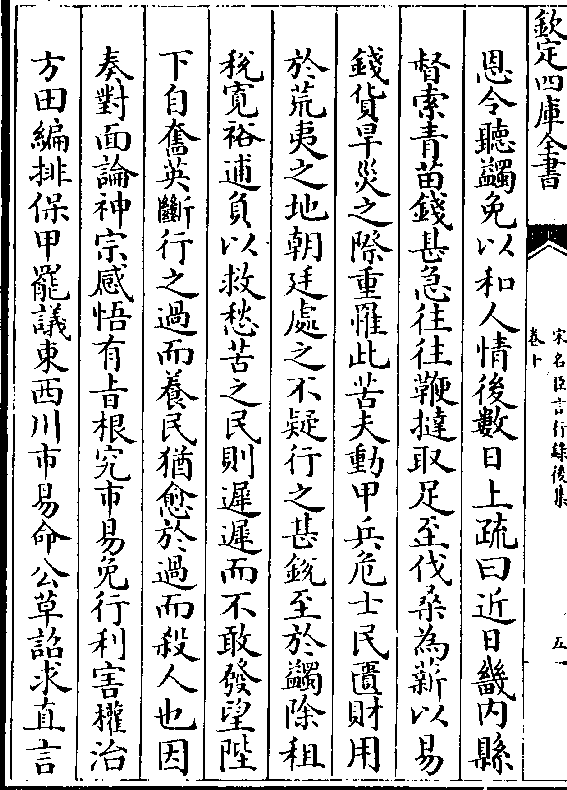 欽定四庫全書
宋名臣言行錄後集
卷十
五
恩令聽蠲免以和人情後數日上疏曰近日畿内縣
督索青苗錢甚急往往鞭撻取足至伐桑為薪以易
錢貨旱災之際重罹此苦夫動甲兵危士民匱財用
於荒夷之地朝廷處之不疑行之甚銳至於蠲除租
税寛裕逋負以救愁苦之民則遲遲而不敢發望陛
下自奮英斷行之過而養民猶愈於過而殺人也因
奏對面論神宗感悟有旨根究市易免行利害權治
方田編排保甲罷議東西川市易命公草詔求直言